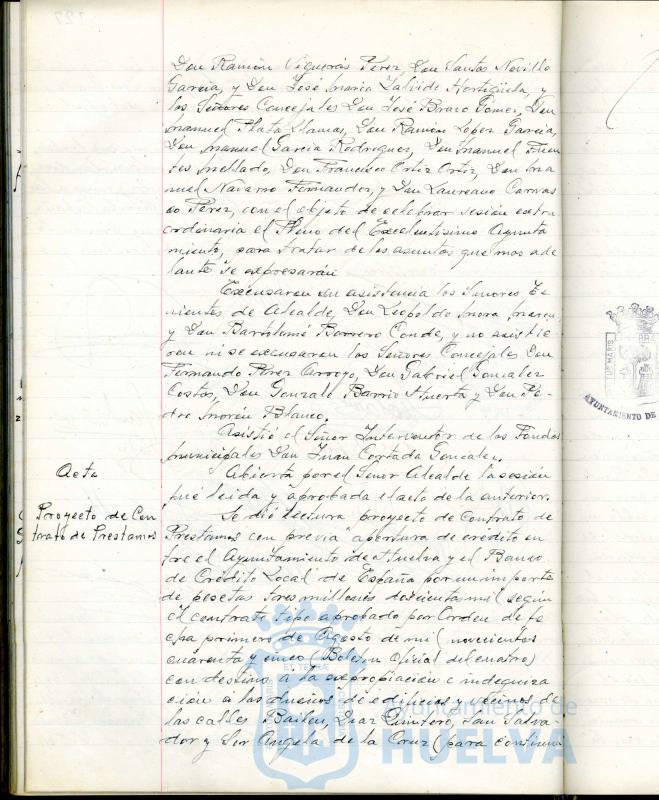 Don Ramón Vigueras Pérez, Don Santos Novillo
García, y Don José María Zalvide Hortigüela, y
los Señores Concejales Don José Bravo Gomez, Don
Manuel Plata Llamas, Don Ramón López García,
Don Manuel García Rodriguez, Don Manuel Fuen
tes Mellado, Don Francisco Ortiz Ortiz, Don Ma
nuel Navarro Fernandez, y Don Laureano Carras
co Pérez, con el objeto de celebrar sesión extra
ordinaria el Pleno del Excelentisimo Ayunta
miento, para tratar de los asuntos que mas ade
lante se expresarán
Excusaron su asistencia los Señores Te
nientes de Alcalde, Don Leopoldo Mora Marín
y Don Bartolomé Borrero Conde, y no asistie
ron ni se excusaron los Señores Concejales Don
Fernando Pérez Arroyo, Don Gabriel Gonzalez
Costas, Don Gonzalo Barrio Huerta y Don Pe
dro Morón Blanco.
Asistió el Señor Interventor de los Fondos
Municipales Don Juan Cortada Gonzalez.
Acta
Abierta por el Señor Alcalde la sesión
fué leida y aprobada el acta de la anterior.
Proyecto de Con
trato de Prestamos
Se dió lectura proyecto de Contrato de
Prestamos con previa apertura de crédito en
tre el Ayuntamiento de Huelva y el Banco
de Crédito Local de España por un importe
de pesetas tres millones doscientas mil según
el contrato tipo aprobado por Orden de fe
cha primero de Agosto de mil novecientos
cuarenta y cinco (Boletín Oficial del cuatro)
con destino a la expropiación e indemniza
ción a los dueños de edificios y vecinos de
las calles Bailen, Diaz Quintero, San Salva
dor y Sor Angela de la Cruz (para continua
AYUNTAMIENTO DE
Ayuntamiento de
HUELVA